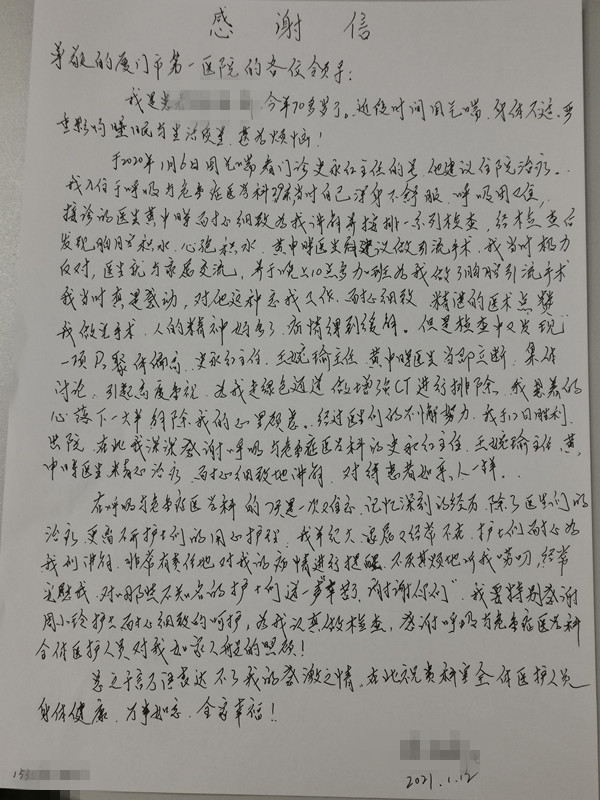 感谢信
尊敬的厦门市第一医院的各位领导:
我是 今年70多岁了。近段时间因气喘,身体不适,严
重影响睡眠与生活质量,甚为烦恼!
于2020年1月6日因气喘看门诊史永红主任的号,他建议住院治疗。
我入住于呼吸与危重症医学科 当时自己浑身不舒服,呼吸困难,
接诊的医生黄中晖耐心细致为我讲解并安排一系列检查,经检查后
发现胸腔积水、心包积水,黄中晖医生建议做引流手术,我当时极力
反对,医生就与家属交流,并于晚上10点多加班为我做了胸腔引流手术
我当时真是感动,对他这种忘我工作、耐心细致、精湛的医术点赞
我做完手术,人的精神好多了,病情得到缓解。但是检查中又发现
一项D-二聚体偏高,史永红主任、王婉瑜主任、黄中晖医生当即立断,集体
讨论,引起高度重视,为我走绿色通道做增强CT进行排除,我悬着的
心落下一大半,解除我的心里顾虑。经过医生们的不懈努力,我于12日胜利
出院,在此我深深感谢呼吸与危重症医学科的史永红主任、王婉瑜主任、黄
中晖医生精心治疗,耐心细致地讲解,对待患者如亲人一样。
在呼吸与危重症医学科的 是一次难忘、记忆深刻的经历,除了医生们的
治疗,更离不开护士们的用心护理,我年纪大,家属又经常不在,护士们耐心为
我 讲解,非常有责任地对我的病情进行提醒,不厌其烦地听我唠叨,经常
安慰我,对那些不知名的护士们道一声"辛苦了,谢谢你们"。我要特别感谢
周小玲护士耐心细致的呵护,为我认真做检查,感谢呼吸与危重症医学科
全体医护人员对我如家人般的照顾!
总之千言万语表达不了我的感激之情,在此祝贵科室全体医护人员
身体健康,万事如意,全家幸福!
2021.1.12